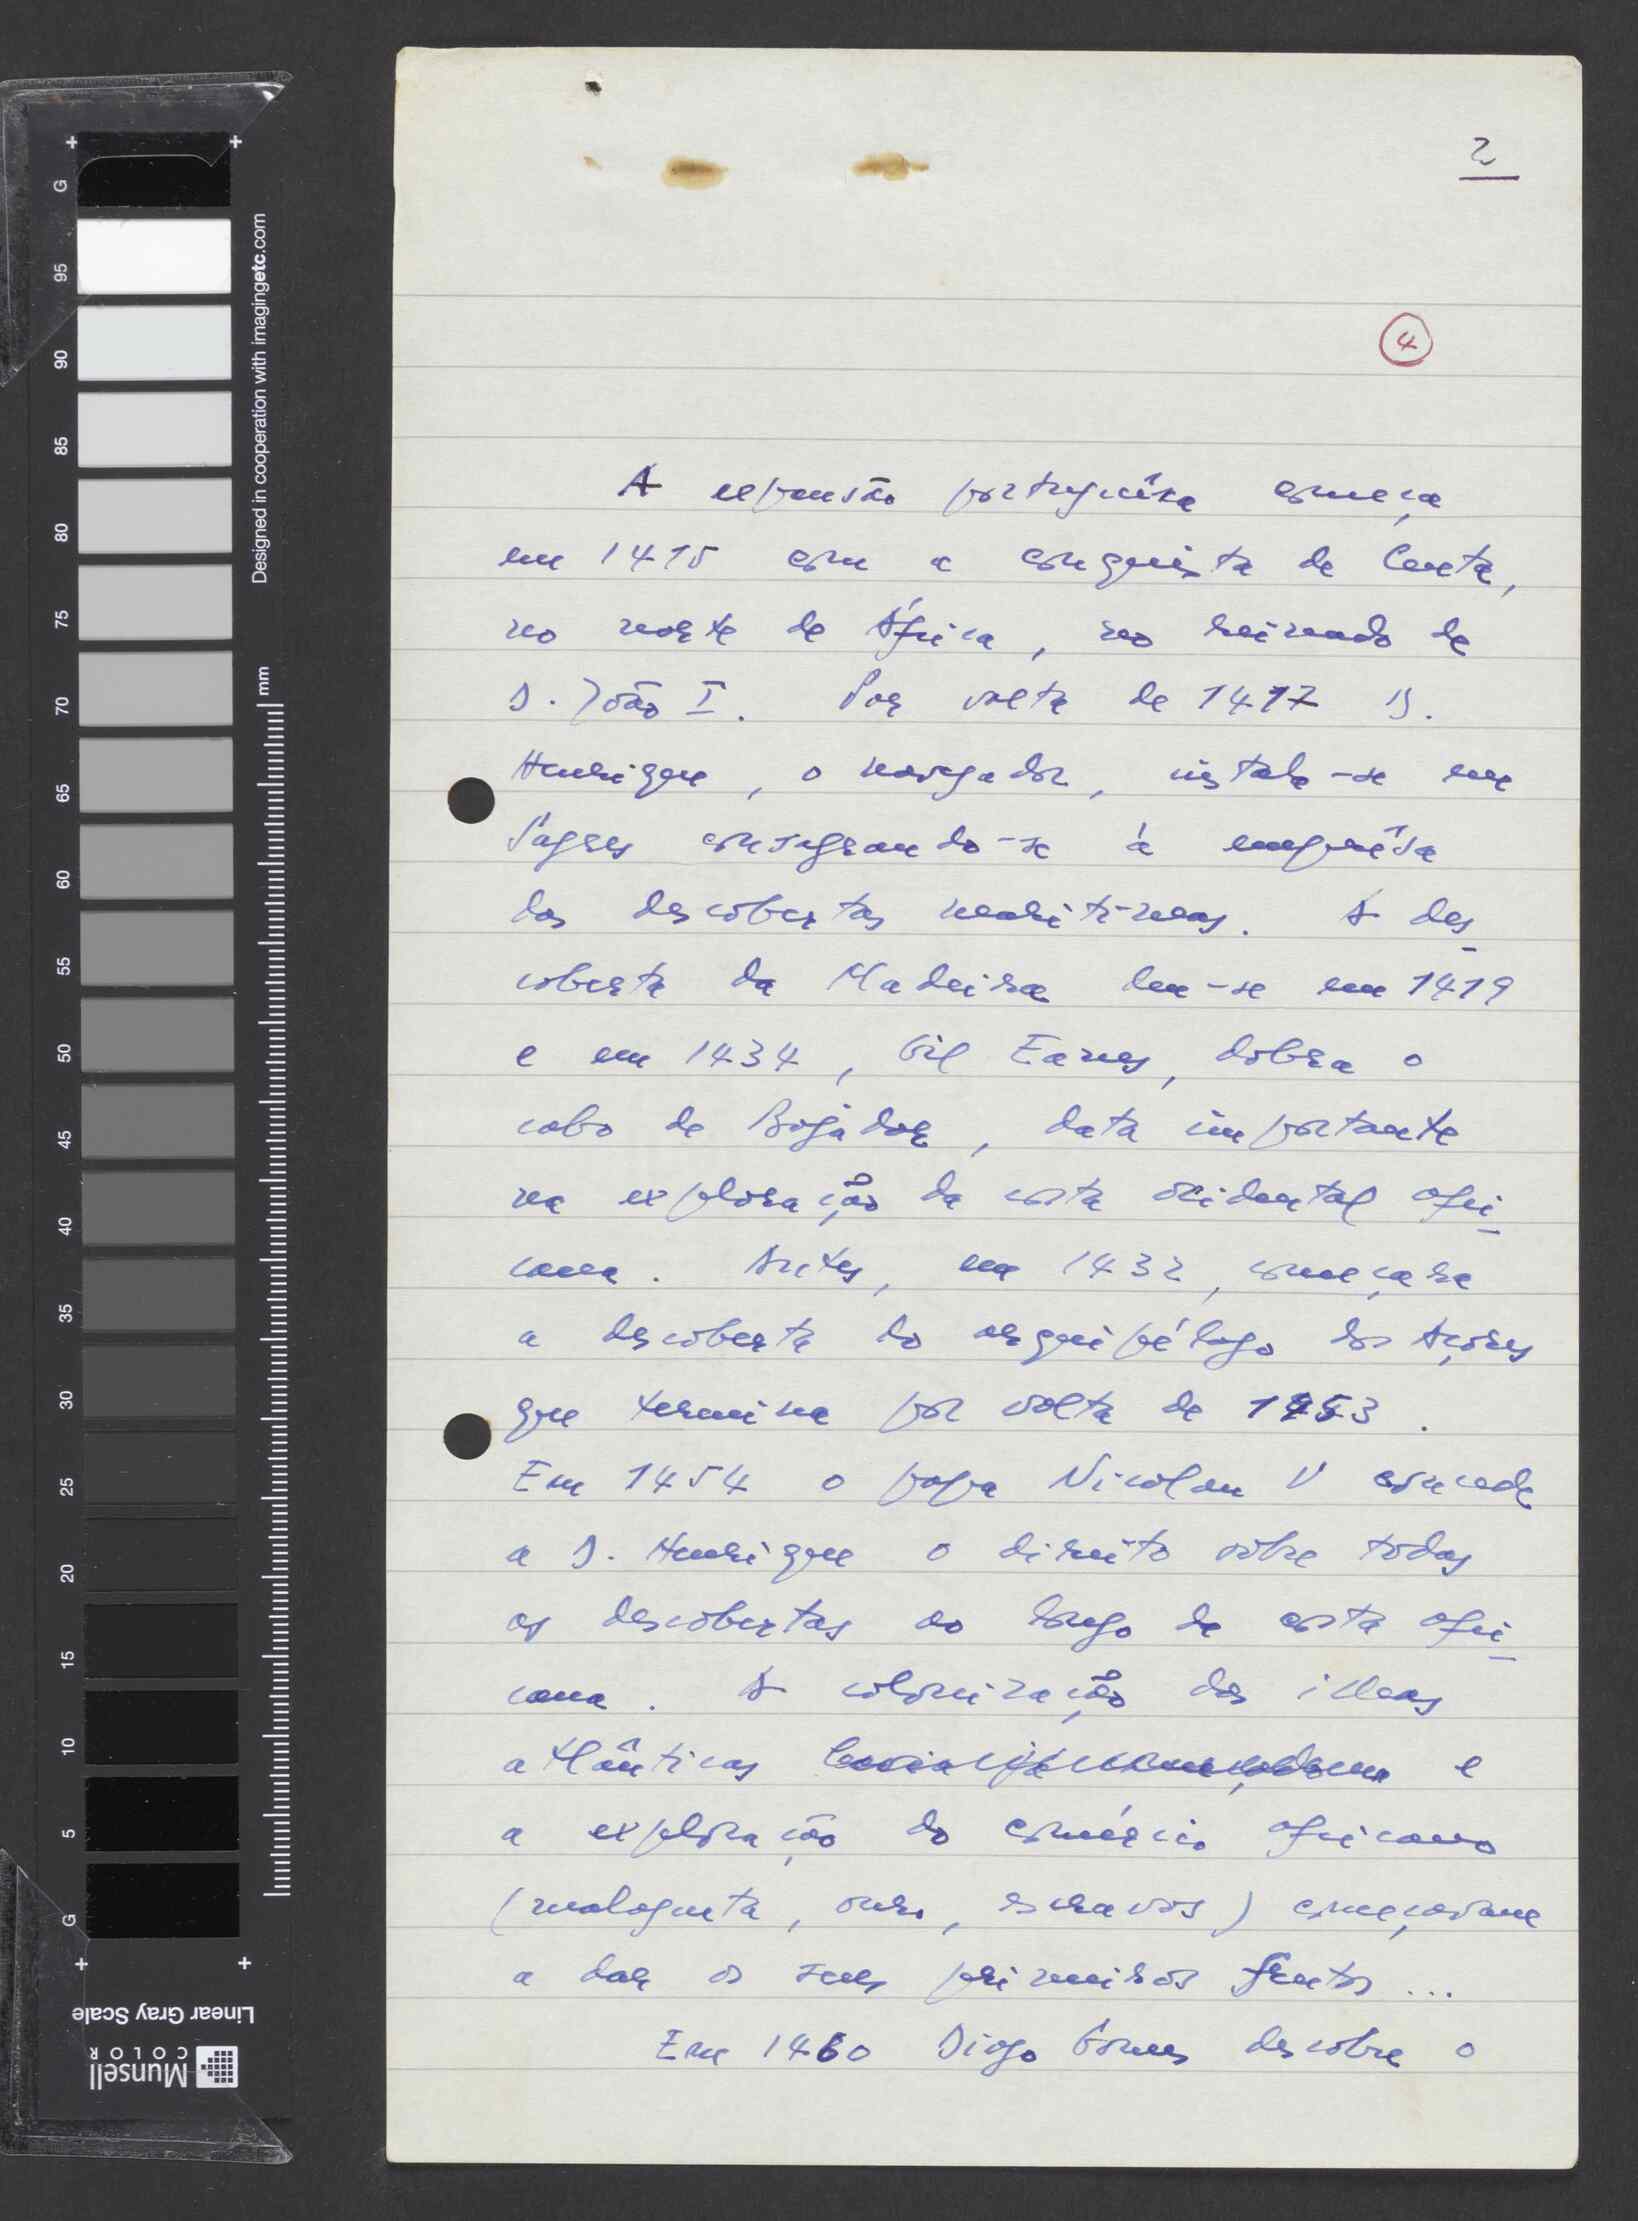 2
4
A expansão portuguêsa começa
em 1415 com a conquista de Ceuta,
no norte de África, no reinado de
D. João I. Por volta de 1417 D.
Henrique, o navegador, instala-se em
Sagres consagrando-se à emprêsa
das descobertas marítimas. A des-
coberta da Madeira deu-se em 1419
e em 1434, Gil Eanes, dobra o
cabo de Bojador, data importante
na exploração da costa ocidental afri-
cana. Antes, em 1432, começara
a descoberta do arquipélago dos Açores
que termina por volta de 1453.
Em 1454 o papa Nicolau V concede
a D. Henrique o direito sôbre todas
as descobertas ao longo da costa afri-
cana. A colonização das ilhas
atlânticas e
a exploração do comércio africano
(malagueta, ouro, escravos) começavam
a dar os seus primeiros frutos...
Em 1460 Diogo Gomes descobre o
Designed in cooperation with imagingetc.com
mm
G
95
90
85
80
75
70
65
60
55
50
45
40
35
30
25
20
15
10
5
G
Linear Gray Scale
Munsell
COLOR